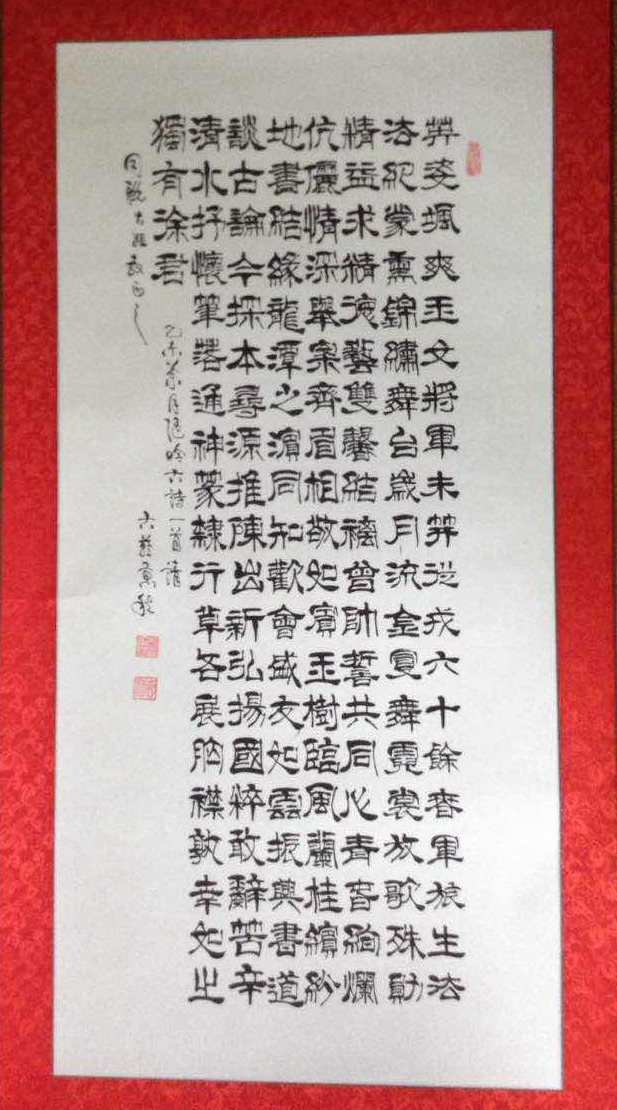 英姿颯爽玉文將軍未笄從戎六十餘春軍旅生法
法紀蒙熏錦繡舞台歲月流金夏舞霓裳放歌殊勛
精益求精德藝雙馨結褵曾帥誓共同心青春絢爛
伉儷情深舉案齊眉相敬如賓玉樹臨風蘭桂繽紛
地書結緣龍潭之濱同知歡會盛友如雲振興書道
談古論今探本尋源推陳出新弘揚國粹敢辭苦辛
清水抒懷筆落通神篆隸行草各展胸襟孰幸如之
獨有涂君
乙未 月 吟六詩一首請
同 方正之